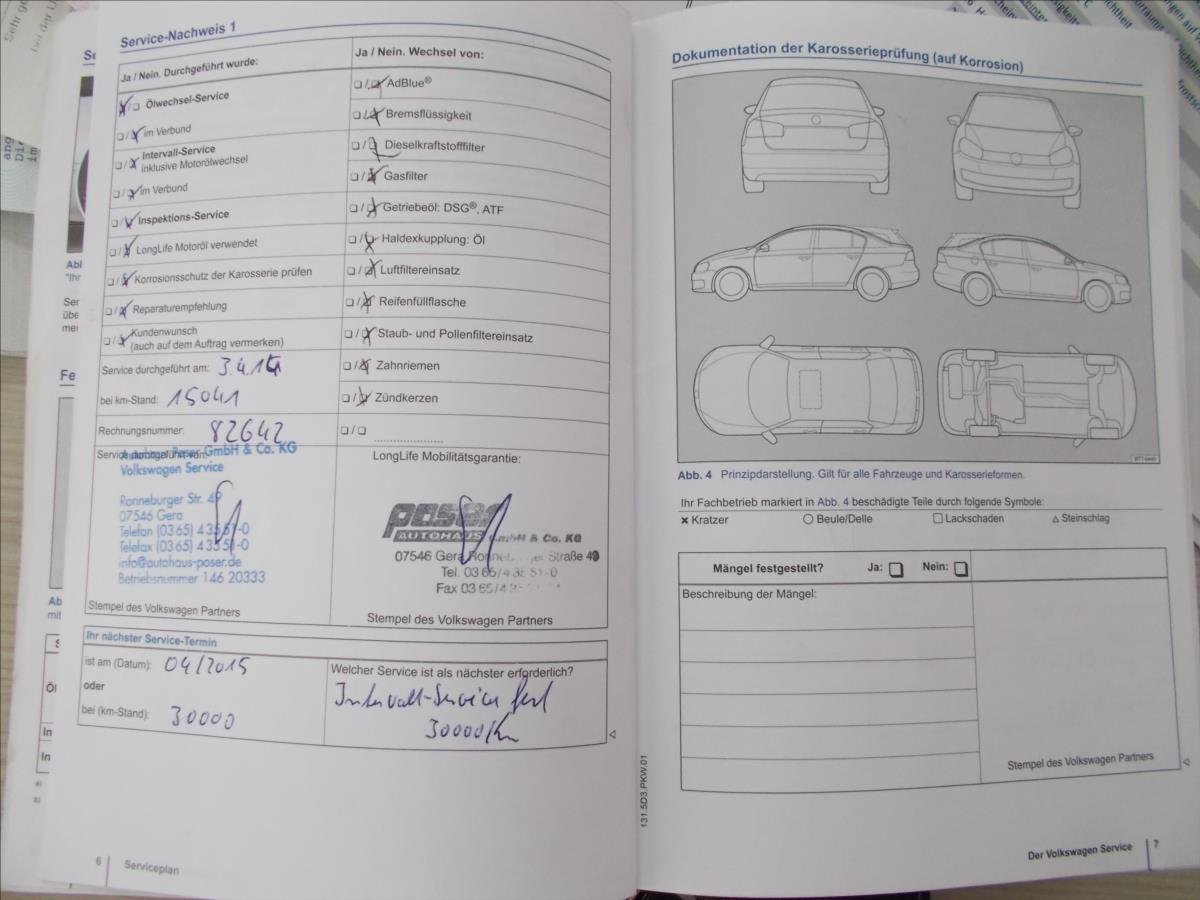 Service-Nachweis 1
Ja / Nein. Durchgeführt wurde:
Ölwechsel-Service
im Verbund
Intervall-Service
inklusive Motorölwechsel
im Verbund
Inspektions-Service
LongLife Motoröl verwendet
Korrosionsschutz der Karosserie prüfen
Reparaturempfehlung
Kundenwunsch
(auch auf dem Auftrag vermerken)
Service durchgeführt am: 3.4.14
bei km-Stand: 15041
Rechnungsnummer: 82642
Ja / Nein. Wechsel von:
AdBlue®
Bremsflüssigkeit
Dieselkraftstofffilter
Gasfilter
Getriebeöl: DSG®, ATF
Haldexkupplung: Öl
Luftfiltereinsatz
Reifenfüllflasche
Staub- und Pollenfiltereinsatz
Zahnriemen
Zündkerzen
Service durchgeführt von:
GmbH & Co. KG
Volkswagen Service
Ronneburger Str. 49
07546 Gera
Telefon (03 65) 4 35 51-0
Telefax (03 65) 4 35 51-0
info@autohaus-poser.de
Betriebsnummer 146 20333
Stempel des Volkswagen Partners
LongLife Mobilitätsgarantie:
poser
AUTOHAUS GmbH & Co. KG
07546 Gera Straße 49
Tel. 03 65/4 35 51-0
Fax 03 65/4 35
Stempel des Volkswagen Partners
Ihr nächster Service-Termin
ist am (Datum): 04/2015
oder
bei (km-Stand): 30000
Welcher Service ist als nächster erforderlich?
Intervall-Service fest
30000/Km
6 Serviceplan
131.5D3.PKW.01
Dokumentation der Karosserieprüfung (auf Korrosion)
Abb. 4 Prinzipdarstellung. Gilt für alle Fahrzeuge und Karosserieformen.
Ihr Fachbetrieb markiert in Abb. 4 beschädigte Teile durch folgende Symbole:
Kratzer Beule/Delle Lackschaden Steinschlag
Mängel festgestellt? Ja: Nein:
Beschreibung der Mängel:
Stempel des Volkswagen Partners
Der Volkswagen Service 7